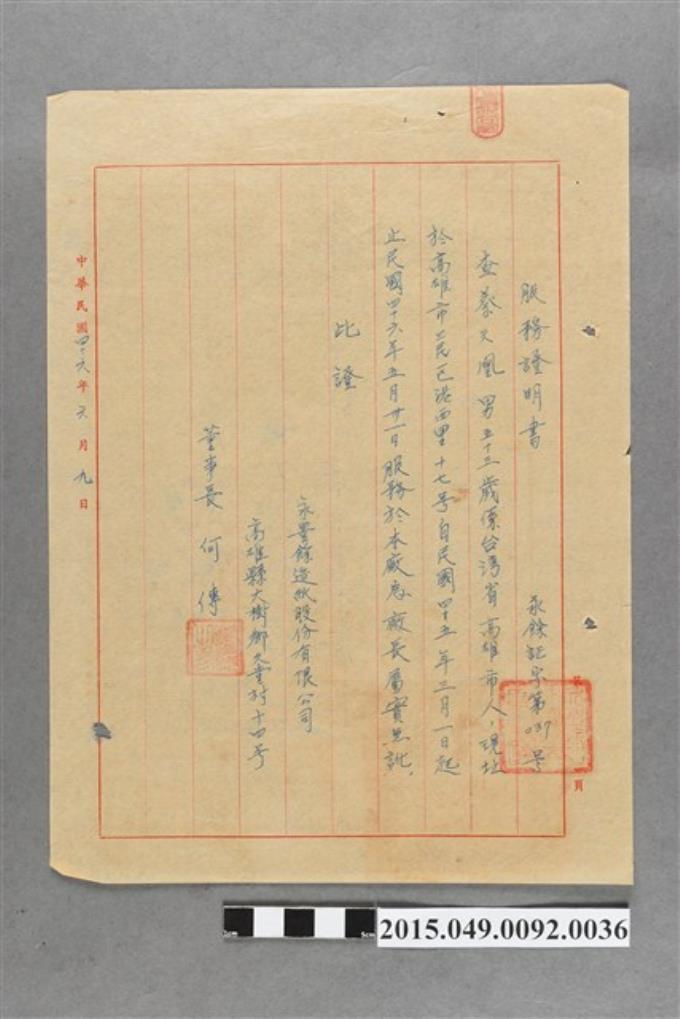 服務證明書
永餘証字第037号
查蔡文凰 男五十三歲係台湾省高雄市人,現址
於高雄市三民区港西里十七号自民國四十五年三月一日起
止民國四十六年五月廿一日服務於本廠 廠長屬實無訛.
比證
永豐餘造紙股份有限公司
高雄縣大樹鄉久堂村十四号
董事長 何傳
中華民國四十六年六月九日
頁
5cm
2015.049.0092.0036